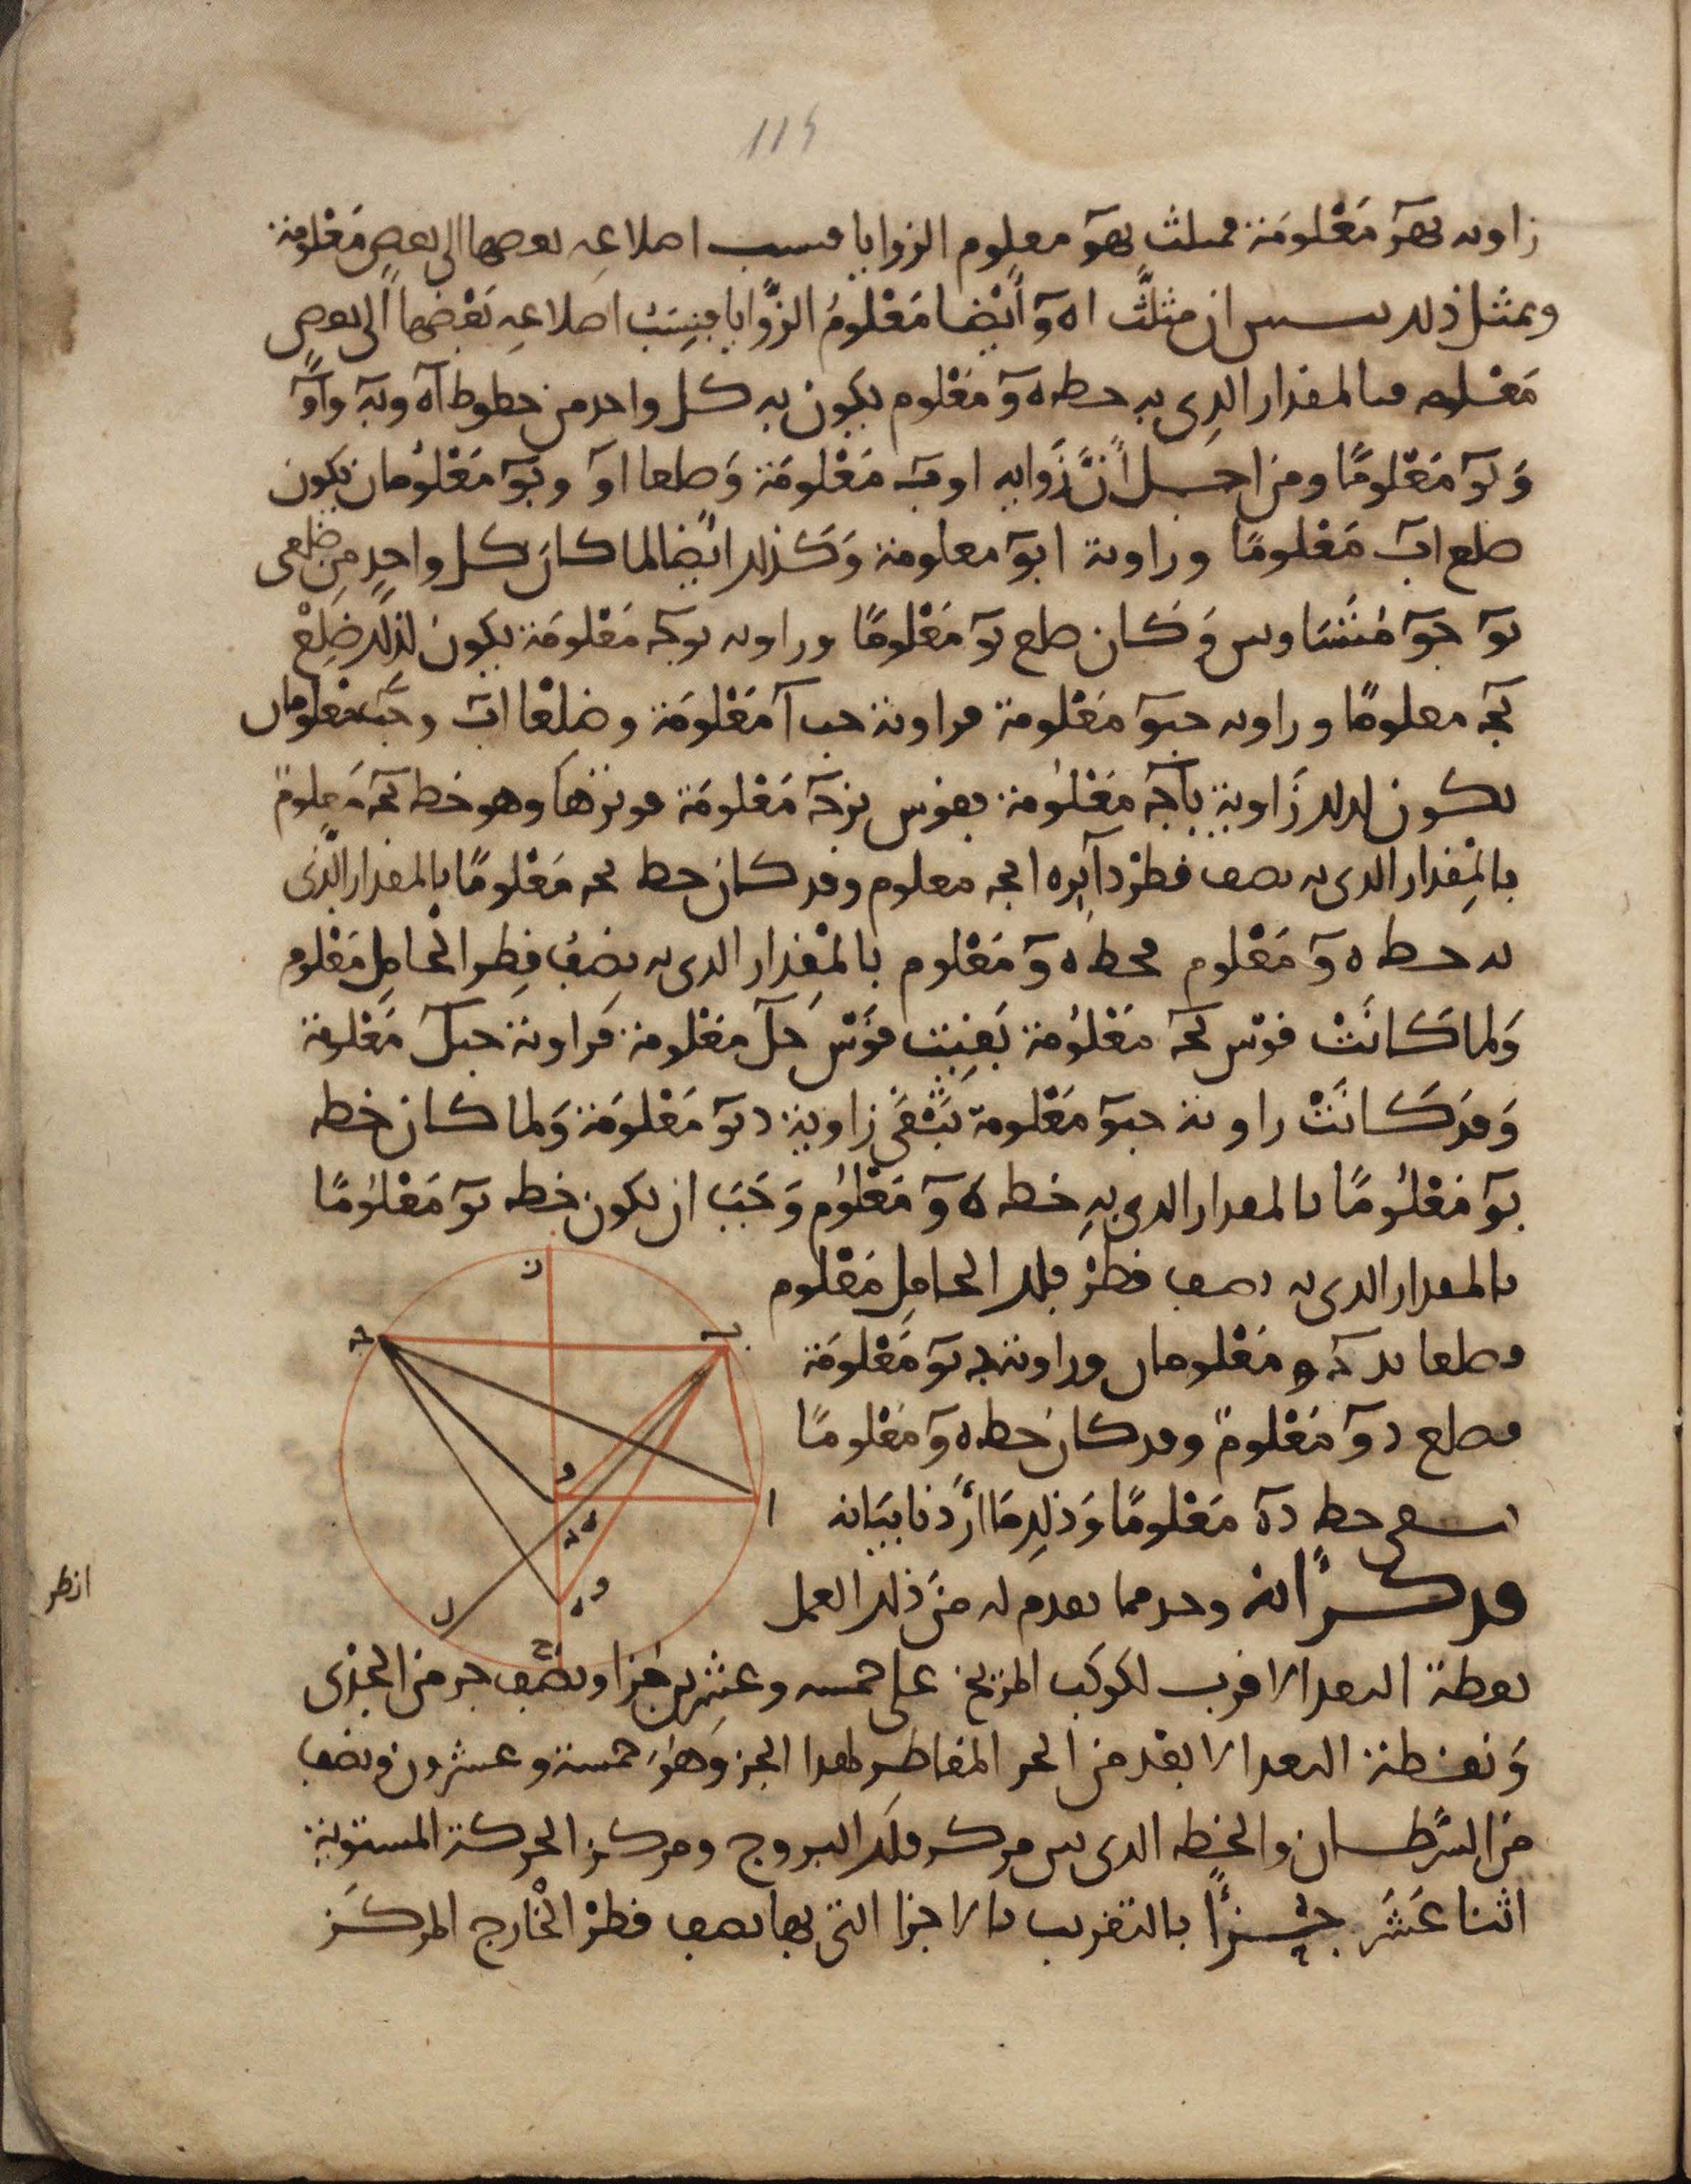 115
زاويه بهو معلومة فمثلث بهو معلوم الزوايا فنسب اضلاعه بعضها الى بعض معلومة
وبمثل ذلك يبين ان مثلث اهو ايضا معلوم الزوايا فنسب اضلاعه بعضها الى بعض
معلومه فبالمقدار الذي به خط هو معلوم يكون به كل واحد من خطوط اه وبه واو
وبو معلوما ومن اجل ان زوايه اوب معلومة وضلعا او وبو معلومان يكون
ضلع اب معلوما وزاوية ابو معلومة وكذلك ايضا لما كان كل واحد من ضلعى
بو جو متساويين وكان ضلع بو معلوما وزاويه بوجه معلومة يكون لذلك ضلع
بج معلوما وزاويه جبو معلومة فزاوية جب ا معلومة وضلعا اب وجب معلومان
يكون لذلك زاوية باج معلومة فقوس بزج معلومة فوترها وهو خط بج معلوم
بالمقدار الذي به نصف قطر دايره ابج معلوم وقد كان خط بج معلوما بالمقدار الذى
به خط هو معلوم فخط هو معلوم بالمقدار الذي به نصف قطر الحامل معلوم
ولما كانت قوس بج معلومة بقيت قوس جل معلومة فزاوية جبل معلومة
وقد كانت زاوية جبو معلومة تبقى زاوية دبو معلومة ولما كان خط
بو معلوما بالمقدار الذي به خط هو معلوم وجب ان يكون خط بو معلوما
بالمقدار الذي به نصف قطر فلك الحامل معلوم
فضلعا بد و معلومان وزاوية دبو معلومة
فضلع دو معلوم وقد كان خط هو معلوما
يبقى خط ده معلوما وذلك ما اردنا بيانه
قد ذكر انه وجد مما تقدم له من ذلك العمل
نقطة البعد الاقرب لكوكب المريخ على خمسه وعشرين جزا ونصف جز من الجدى
ونقطة البعد الابعد من الجز المقاطر لهذا الجز وهو خمسة وعشرون ونصف
من السرطان والخط الذي بين مركز فلك البروج ومركز الحركة المستوية
اثنا عشر جزءا بالتقريب بالاجزا التي بها نصف قطر الخارج المركز
انظر
ز
ج
ب
ا
و
د
ه
ل
ح